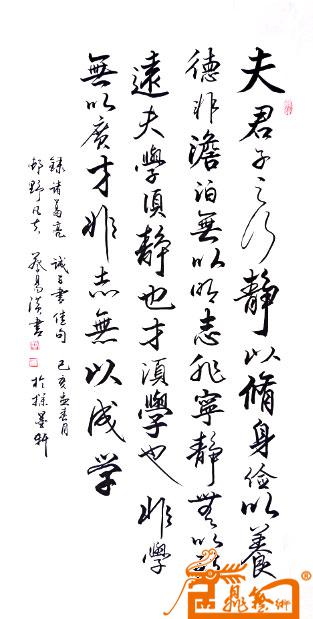 夫君子之行静以脩身儉以養
德非澹泊無以明志非寧静無以致
遠夫學須静也才須學也非學
無以廣才非志無以成学
錄諸葛亮誡子書佳句己亥孟春月
邨野凡夫嚴易漢書於探墨軒